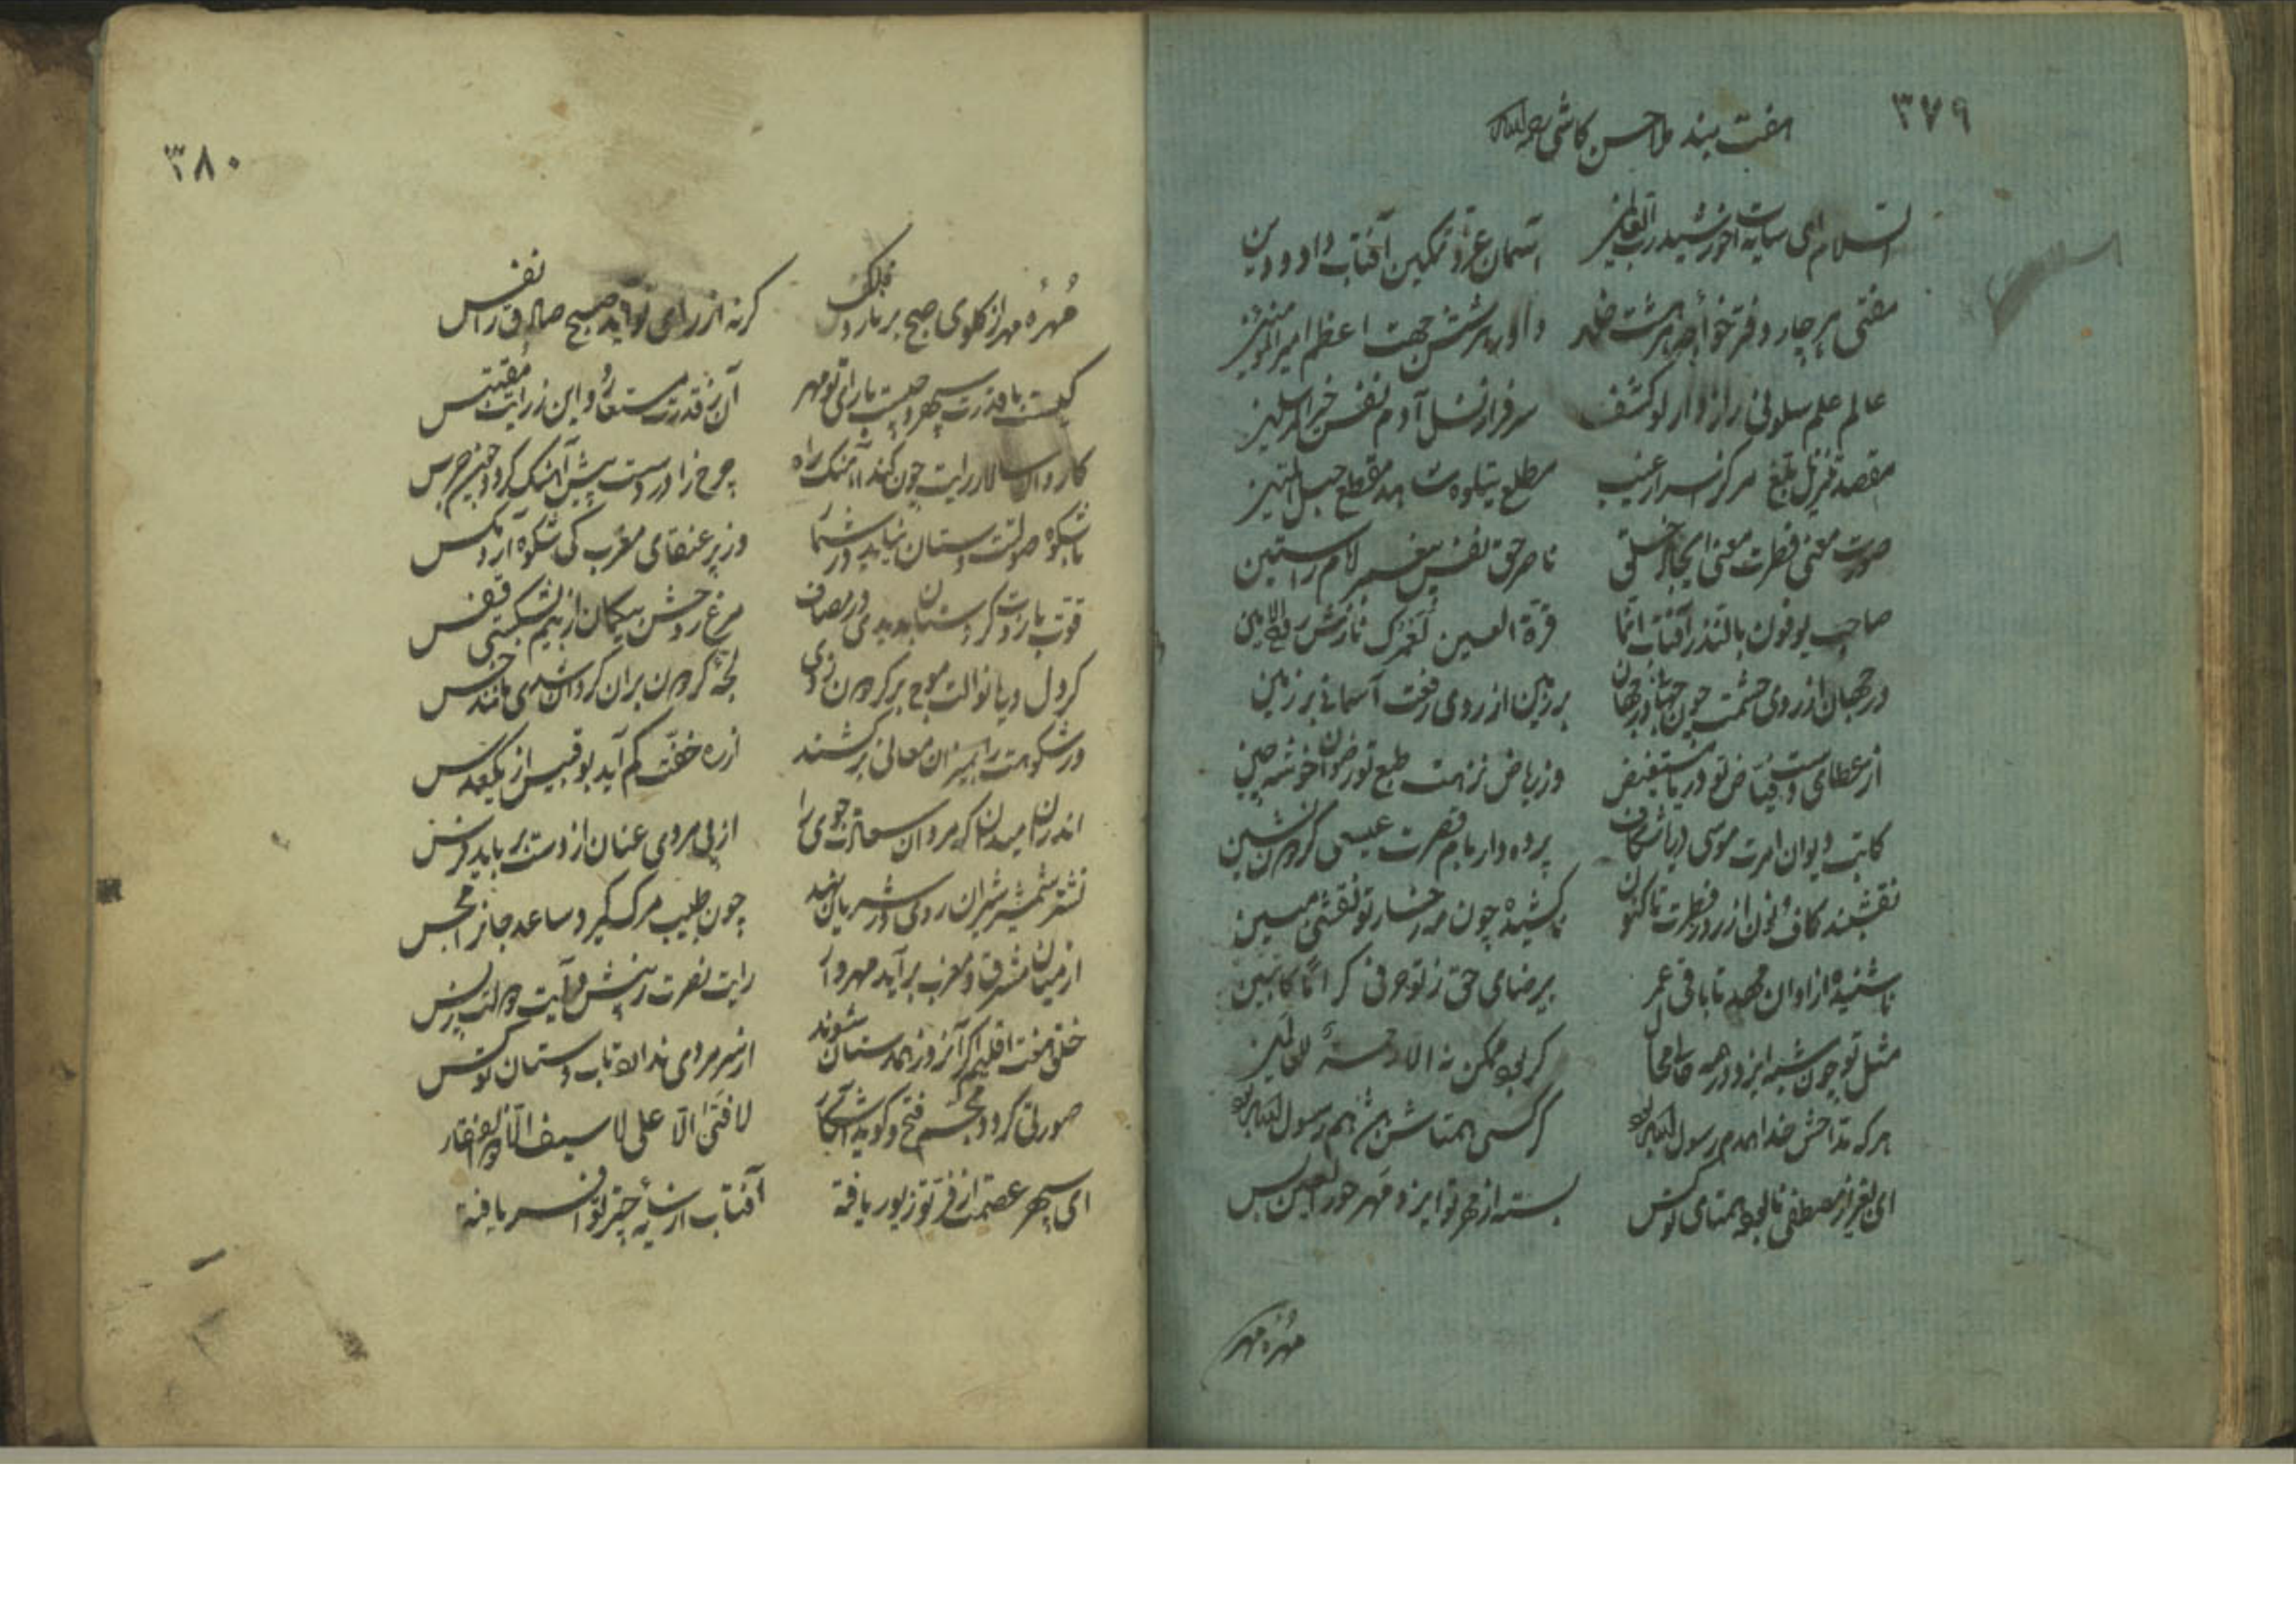 ۳۷۹
هفت بند ملا حسن کاشی رحمه الله
السلام ای سایه‌ات خورشید رب العالمین آسمان عز و تمکین آفتاب داد و دین
مفتی هر چار دفتر خواجه هر هشت خلد داور هر شش جهت اعظم امیر المومنین
عالم علم سلونی رازدار لو کشف سرفراز نسل آدم نفس خیر المرسلین
مقصد تنزیل بلغ مرکز اسرار غیب مطلع یتلوه شاهد مقطع حبل المتین
صورت معنی فطرت معنی ایجاد خلق ناصر حق نفس پیغمبر امام راستین
صاحب یوفون بالنذر آفتاب انما قرة العین لعمرک نازش روح الامین
در جهان از روی حشمت چون جهانی در جهان بر زمین از روی رفعت آسمانی بر زمین
از عطای دست فیاض تو دریا مستفیض وز ریاض نزهت طبع تو رضوان خوشه چین
کاتب دیوان امرت موسی دریا شکاف پرده دار بام قصرت عیسی گردون نشین
نقشبند کاف و نون از روز فطرت تا کنون ناکشیده چون مه رخسار تو نقشی مبین
ناشنیده از اوان مهد تا باقی عمر بیرضای حق ز تو حرفی کراما کاتبین
مثل تو چون شبه ایزد در همه حالی محال کر بود ممکن نه الا رحمة للعالمین
هر که مداحش خدا همدم رسول الله بود کر کسی همتاش باشد هم رسول الله بود
ای بغیر از مصطفی نابوده همتای تو کس بسته از مهر تو ایزد مهر حور العین و بس
مهره مهر
۳۸۰
مهره مهر از کلوی صبح بر نارد فلک کر نه از رای تو آید صبح صادق را نفس
کیست با قدرت سپهر و چیست با رای تو مهر آن ز قدرت مستعار و این ز رایت مقتبس
کاروان سالار رایت چون کند آهنک راه چرخ را در دست پیش آهنک کردد چون جرس
با شکوه صولتت دستان نیاید در شمار وز پر عنقای مغرب کی شکوه آرد مکس
قوت بازوت کر دستان بدیدی در مصاف مرغ روحش بیکمان از بیم بشکستی قفس
کر دل دریا نوالت موج بر کردون زدی لجه کردون بر آن کردان شدی مانند خس
ور شکوهت را بمیزان معالی بر کشند از ره خفت کم آید بوقبیس از یک عدس
اندران میدان که مردان سعادت جوی را از پی مردی عنان از دست برباید فرس
نشتر شمشیر شیران روی در شریان نهد چون طبیب مرک کیرد ساعد جانرا مجس
از میان مشرق و مغرب برآید مهروار رایت نصرت ز پیش و آیت دولت ز پس
خلق هفت اقلیم اکر آنروز همدستان شوند از سر مردی ندارد تاب دستان تو کس
صورتی کردد مجسم فتح و کوید آشکار لا فتی الا علی لا سیف الا ذوالفقار
ای سپهر عصمت از فر تو زیور یافته آفتاب از سایه چتر تو افسر یافته